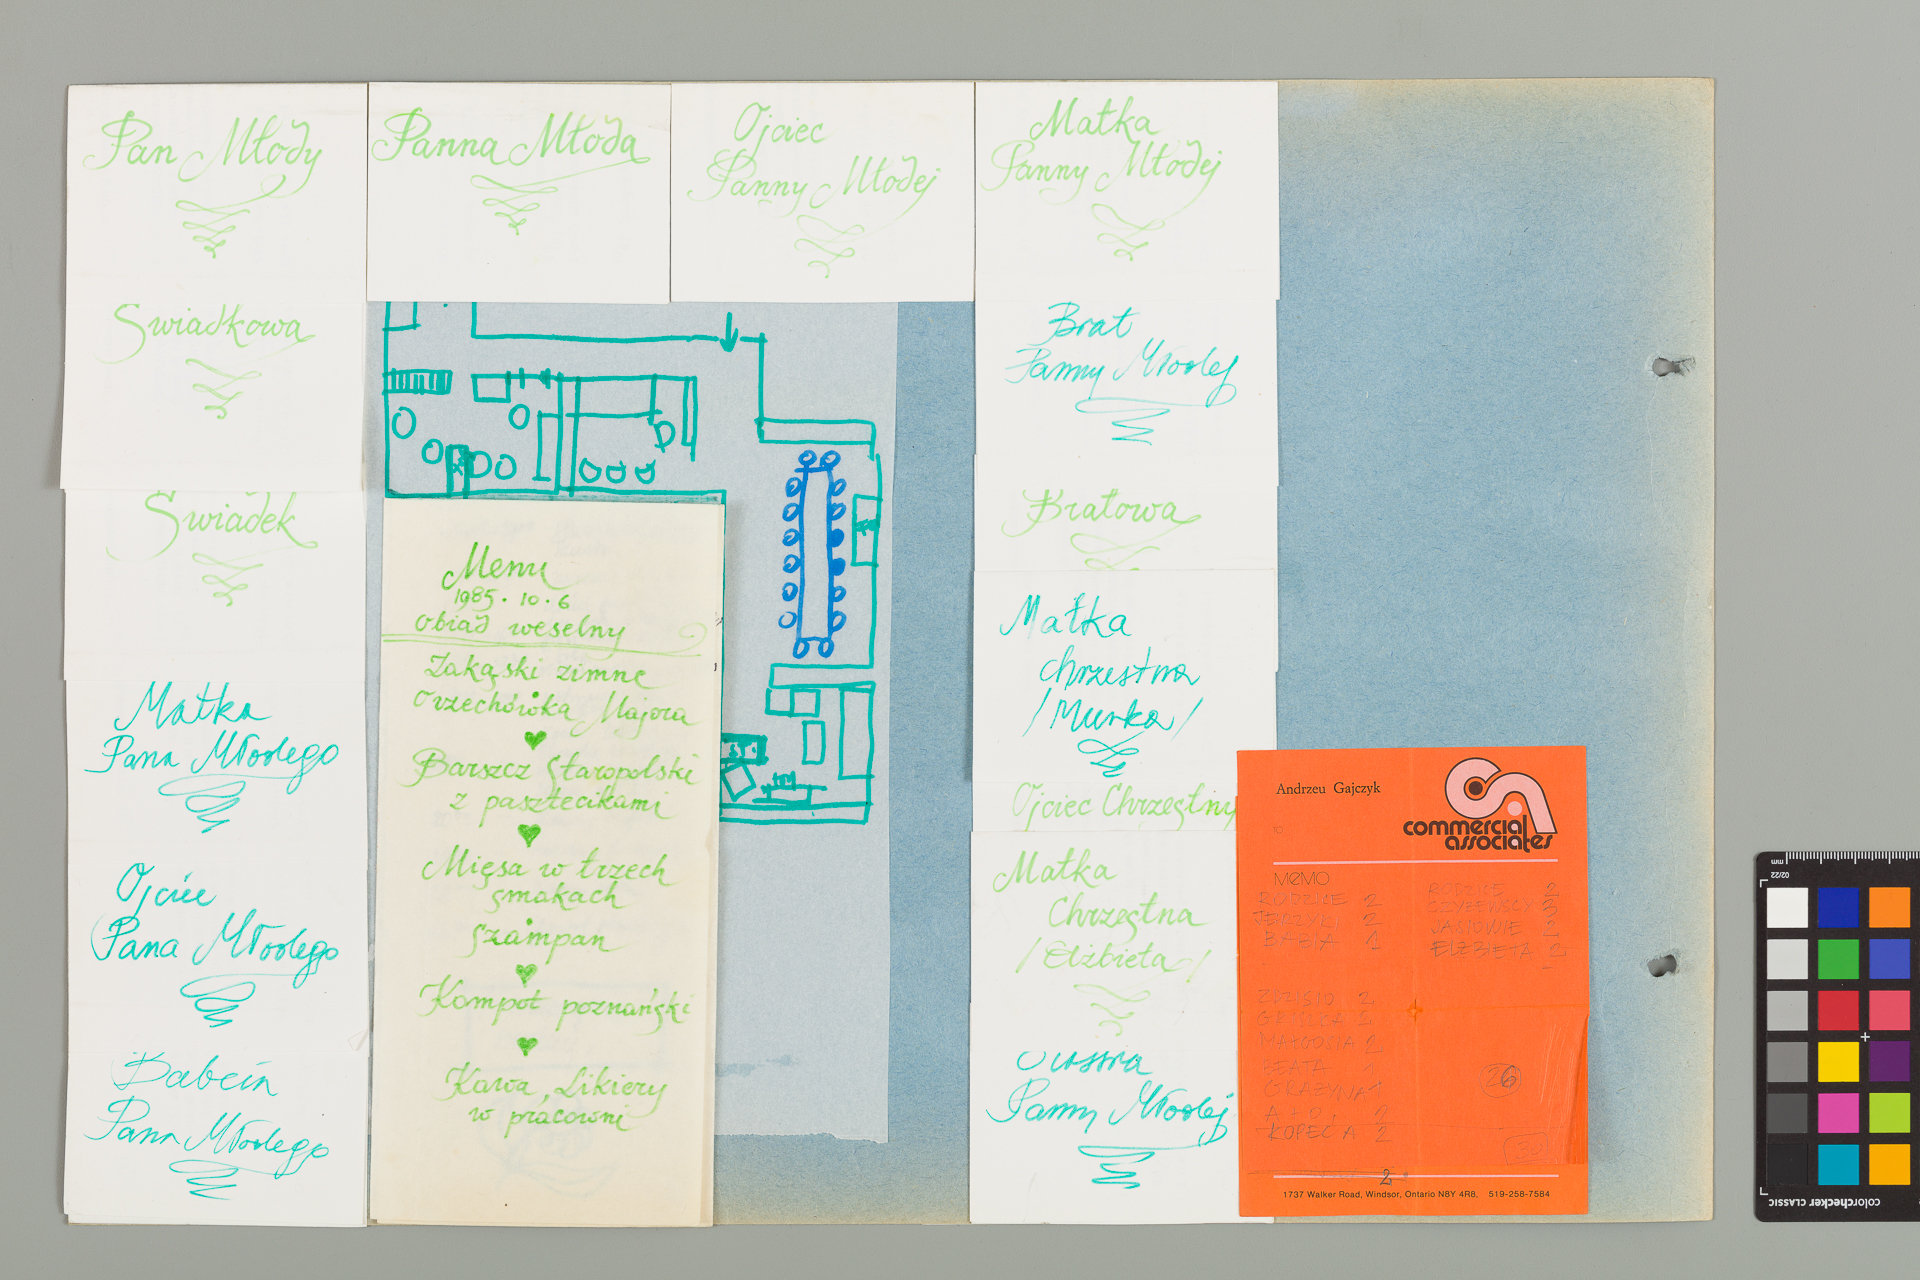 Pan Młody
Panna Młoda
Ojciec
Panny Młodej
Matka
Panny Młodej
Swiadkowa
Swiadek
Matka
Pana Młodego
Ojciec
Pana Młodego
Babcia
Pana Młodego
Menu
1985.10.6
obiad weselny
Zakąski zimne
Orzechówka Majora
Barszcz Staropolski
z pasztecikami
Mięsa w trzech
smakach
Szampan
Kompot poznański
Kawa, Likiery
w pracowni
Brat
Panny Młodej
Bratowa
Matka
chrzestna
/Murka/
Ojciec Chrzestny
Matka
Chrzestna
/Elżbieta/
Panny Młodej
Andrzeu Gajczyk
commercial
associates
TO
MEMO
RODZICE 2
JERZYKI 2
BABIA 1
RODZICE 2
CZYŻEWSCY 3
JACIOWIE 2
ELŻBIETA 2
ZDZISIO 2
MAŁGOSIA 2
BEATA 1
GRAŻYNA 1
A + O.
KOPEĆ A 2
26
30
2
1737 Walker Road, Windsor, Ontario N8Y 4R8, 519-258-7584
mm
02/22
colorchecker CLASSIC